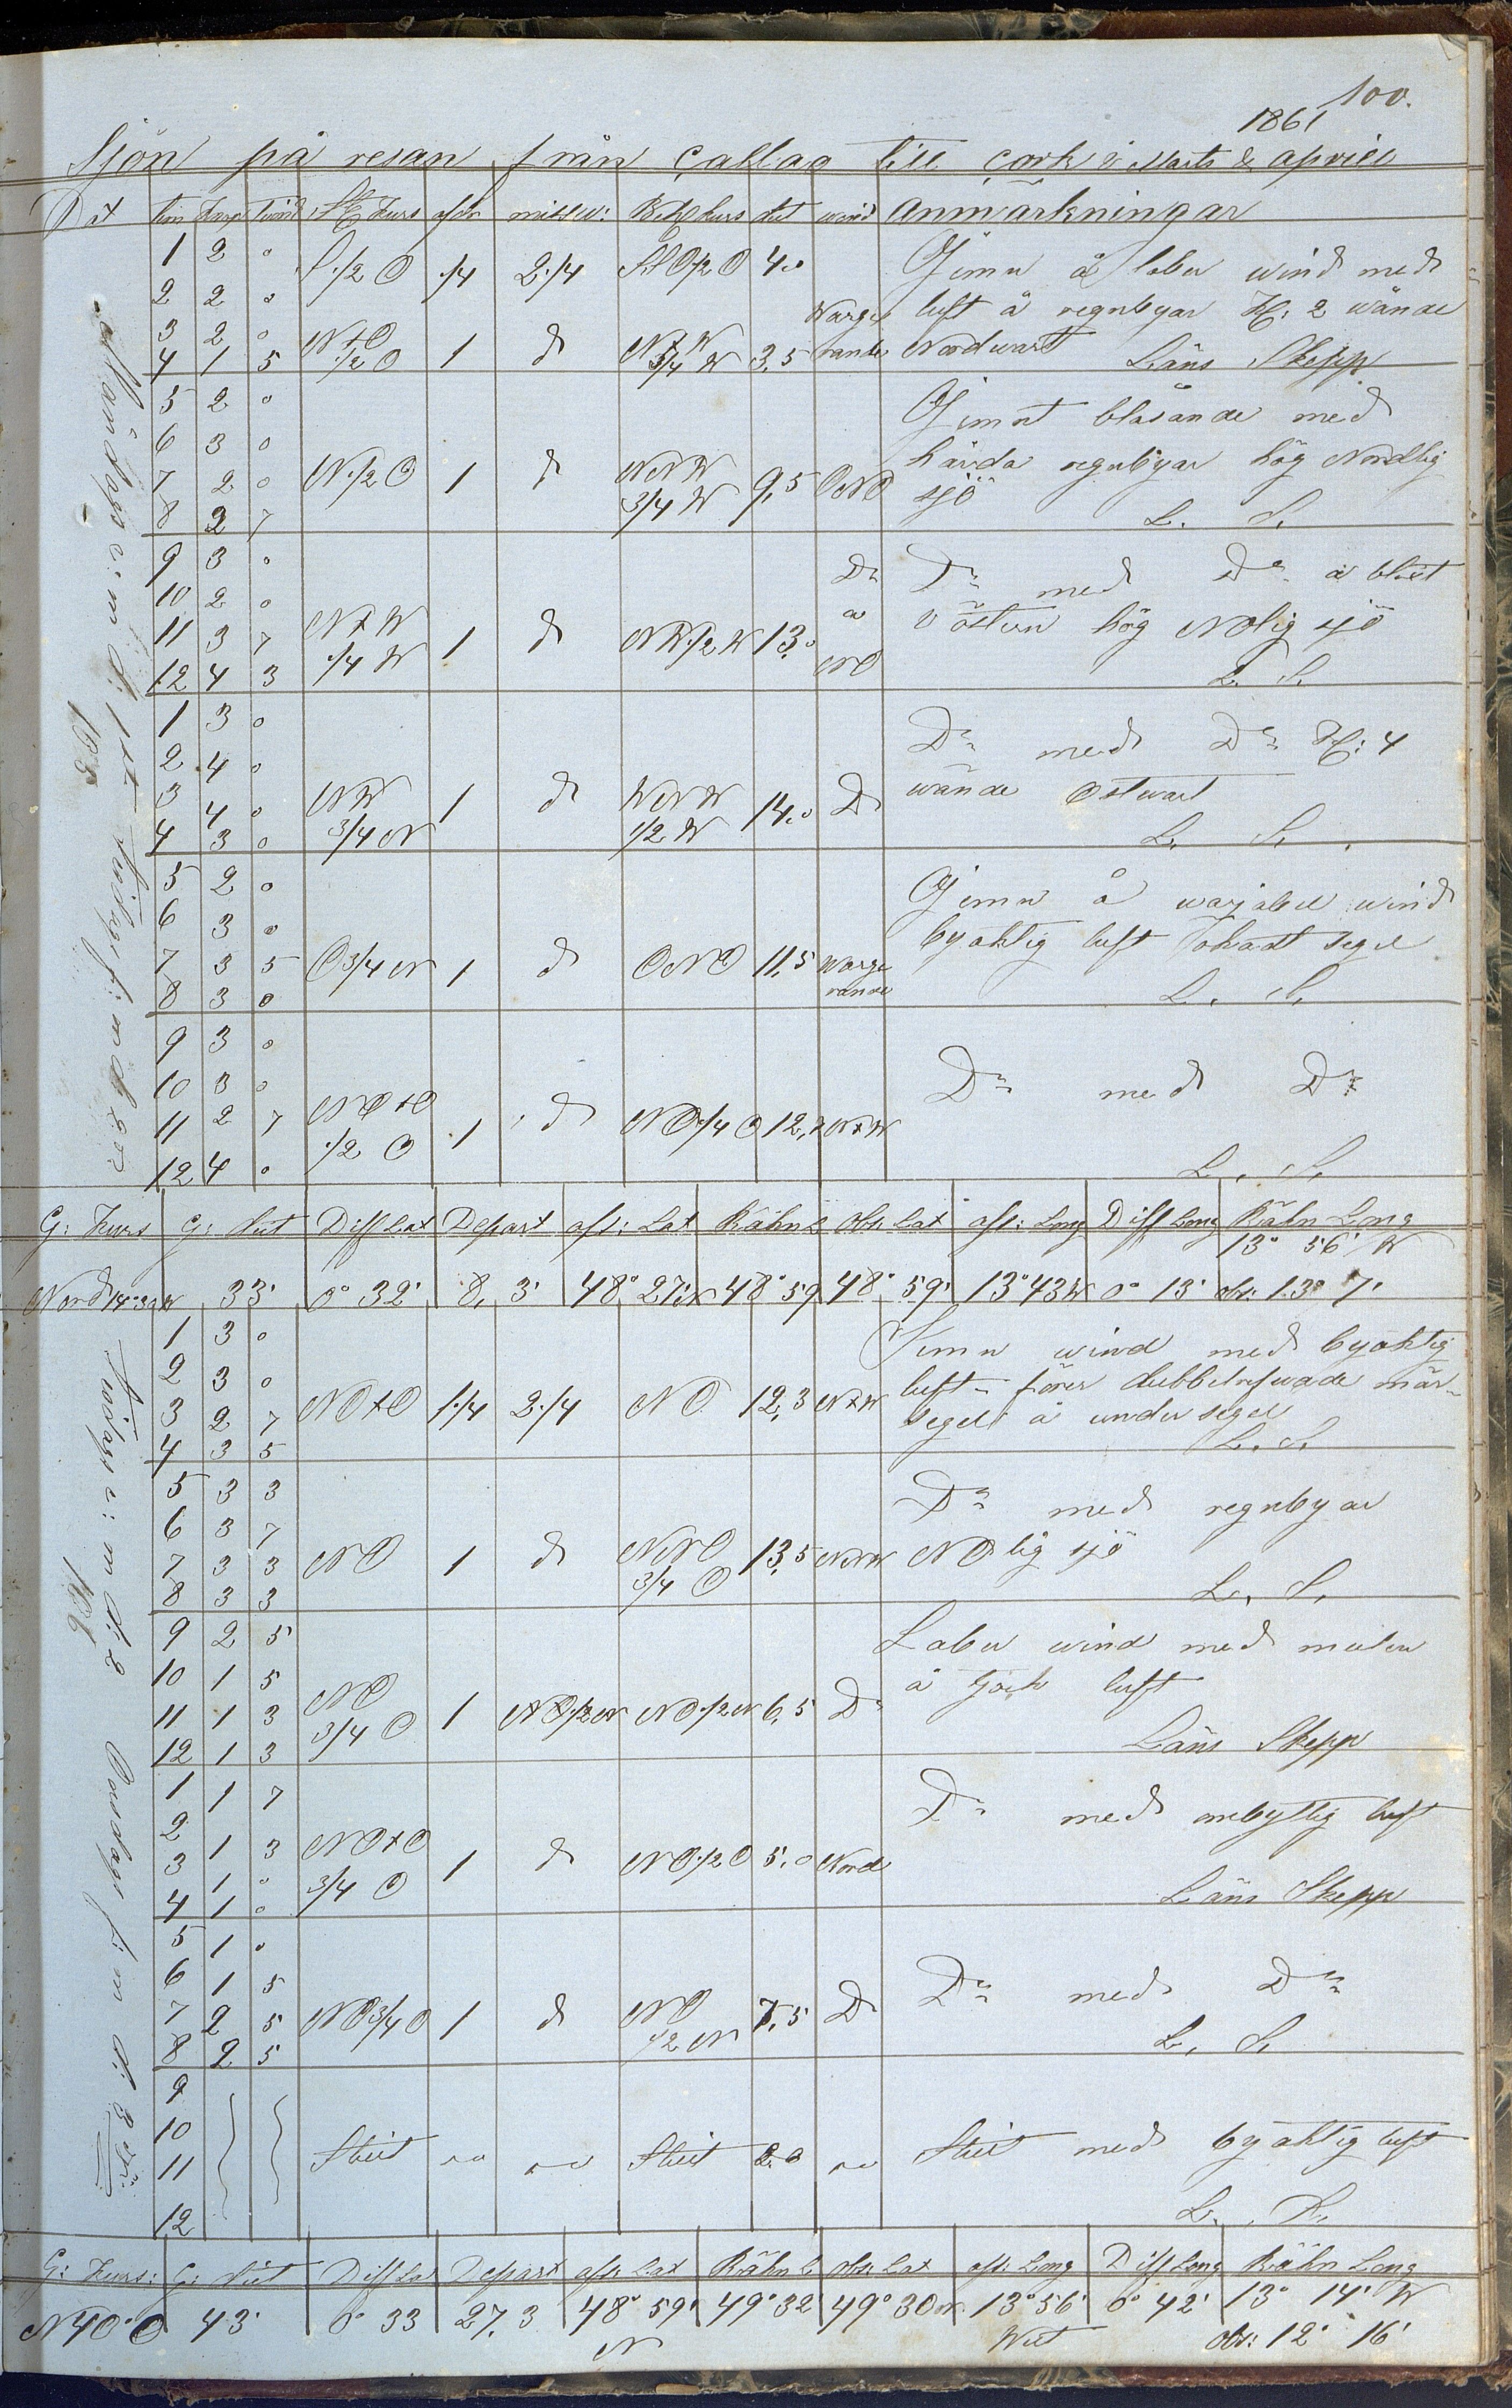 100.
1861
Sjön på resan från Callao till Cork i Marts & April
Dat tim knop  St Kurs afdr missv: Beh kurs dist wind Anmärkningar
1 2 0 S 1/2 O 1/4 2 1/4 4.0 Jemn å laber wind med
2 2 0 luft å regnbyar Kl: 2 wände
3 2 0 N+O 1 d N+W Nordwart
4 1 5 1/2 O 3/4 W 3,5 Läns Skepp
5 2 0 Jemnt blåsande med
6 3 0 hårda regnbyar hög Nordlig
7 2 0 N 1/2 O 1 d NNW 9,5 ONO sjö
8 2 7 3/4 W L. S.
9 3 0 Do Do med Do å blixt
10 2 0 a i östern hög NOlig sjö
11 3 7 N+W 1 d NW 1/2 W 13,0
12 4 3 1/4 W NO L. S.
1 3 0 Do med Do Kl: 4
2 4 0 wände Ostwart
3 4 0 NW 1 d WNW 14.0 Do
4 3 0 3/4 N 1/2 W L. S.
5 2 0 Jemn å warjabel wind
6 3 0 byaktig luft segel
7 3 5 O 3/4 N 1 d ONO 11,5 Warge
8 3 0 rande L. S.
9 3 0
10 3 0 Do med Do
11 2 7 NO+O 1 d NO 1/4 O 12,7 N+W
12 4 0 1/2 O L. S.
Måndags e: m d: 1st Tisdags f: m d: 2
185
G: Kurs G: dist Diff Lat Depart aft: Lat Räkn L Obs: Lat aft: Long Diff Long Räkn Long
13° 56' W
Nord 14°30 W 33' 0° 32' 8,3' 48° 27' N 48° 59 48° 59' 13° 43 W 0° 13' obs: 13° 7'
1 3 0 Jemn wind med byaktig
2 3 0 luft förer dubbelrefwade mär-
3 2 7 NO+O 1 1/4 2 1/4 NO 12,3 N+W segel å undersegel
4 3 5 L. S.
5 3 3 Do med regnbyar
6 3 7
7 3 3 NO 1 d NNO 13,5 NNW NOlig sjö
8 3 3 3/4 O L. S.
9 2 5 Laber wind med mulen
10 1 5 å tjock luft
11 1 3 NO 1 NO 1/2 N 6,5 Do
12 1 3 3/4 O Läns Skepp
1 1 7 Do med luft
2 1 3 NO+O
3 1 0 3/4 O 1 d NO 1/2 O 5,0 Nord
4 1 0 Läns Skepp
5 1 0
6 1 5 Do med Do
7 2 5 NO 3/4 O 1 d NO 7,5 Do
8 2 5 1/2 N L. S.
9
10
11 Stilt Stilt 2.0 Stilt med byaktig luft
12
Tisdags e: m d: 2 Onsdags f: m d: 3
186
G: Kurs: G: dist Diff Lat Depart aft: Lat Räkn L Obs: Lat aft: Long Diff Long Räkn Long
N 40° O 43' 0° 33 27,3 48° 59' 49° 32' 49° 30 N 13° 56' 0° 42' 13° 14' W
N West obs: 12° 16'